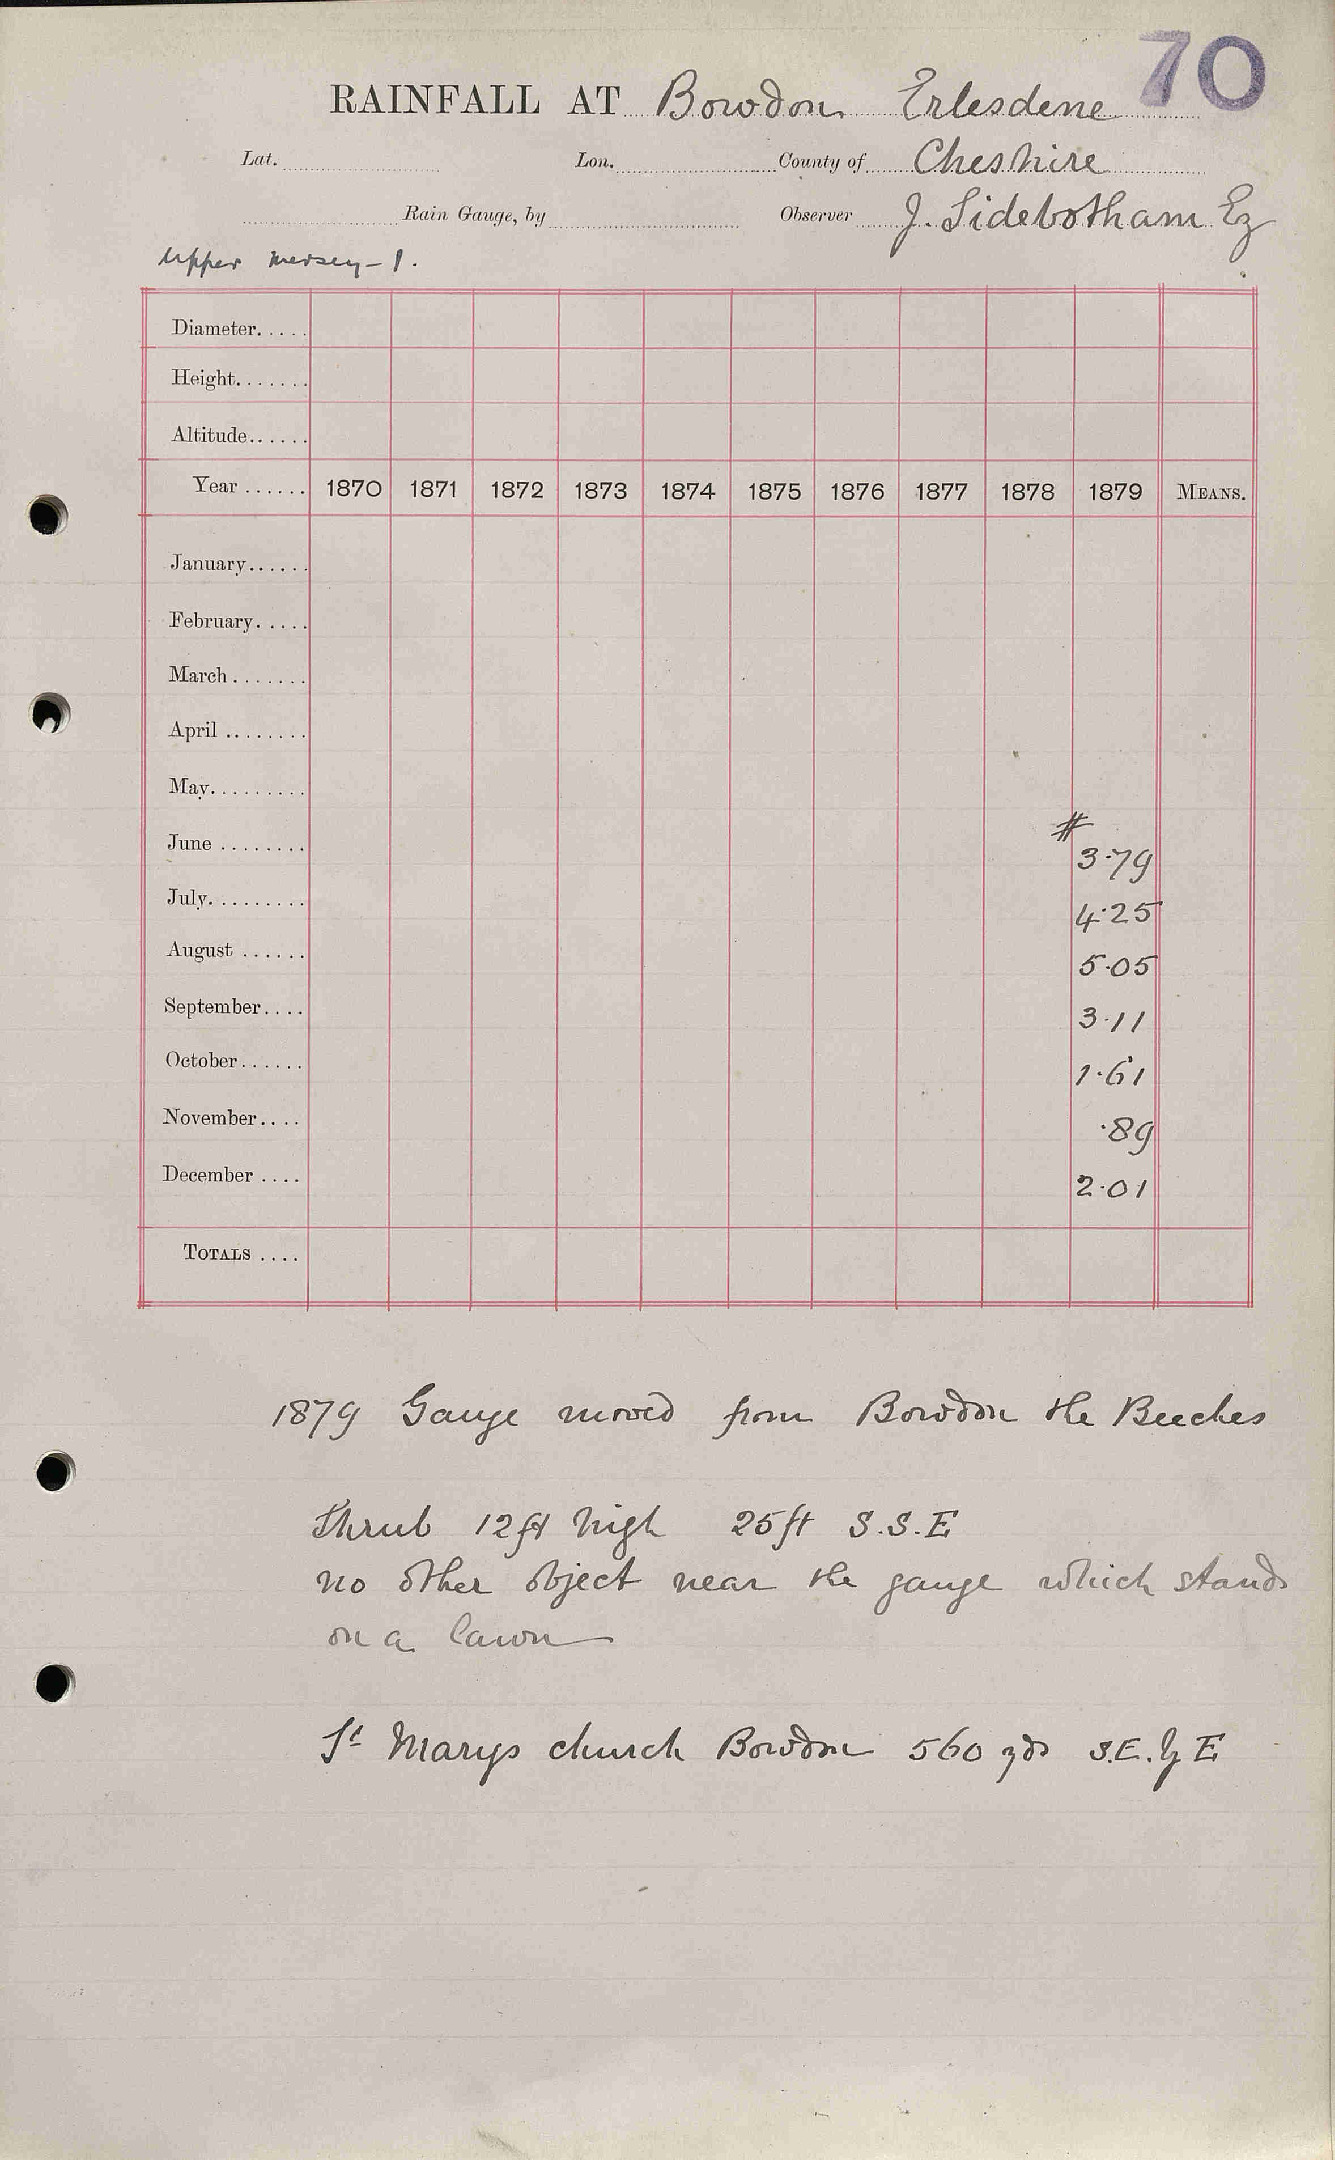 70
RAINFALL AT Bowdon Erlesdene
Lat. Lon. County of Cheshire
Rain Gauge, by Observer J. Sidebotham Ez
Upper Mersey - 1.
Diameter.....
Height.......
Altitude......
Year ...... 1870 1871 1872 1873 1874 1875 1876 1877 1878 1879 MEANS.
January......
February.....
March .......
April ........
May.........
June ........ # 3.79
July......... 4.25
August ...... 5.05
September.... 3.11
October...... 1.61
November.... .89
December .... 2.01
TOTALS ....
1879 Gauge moved from Bowdon the Beeches
Shrub 12ft high 25ft S.S.E
no other object near the gauge which stands
on a lawn
St Marys church Bowdon 560 yds S.E. by E